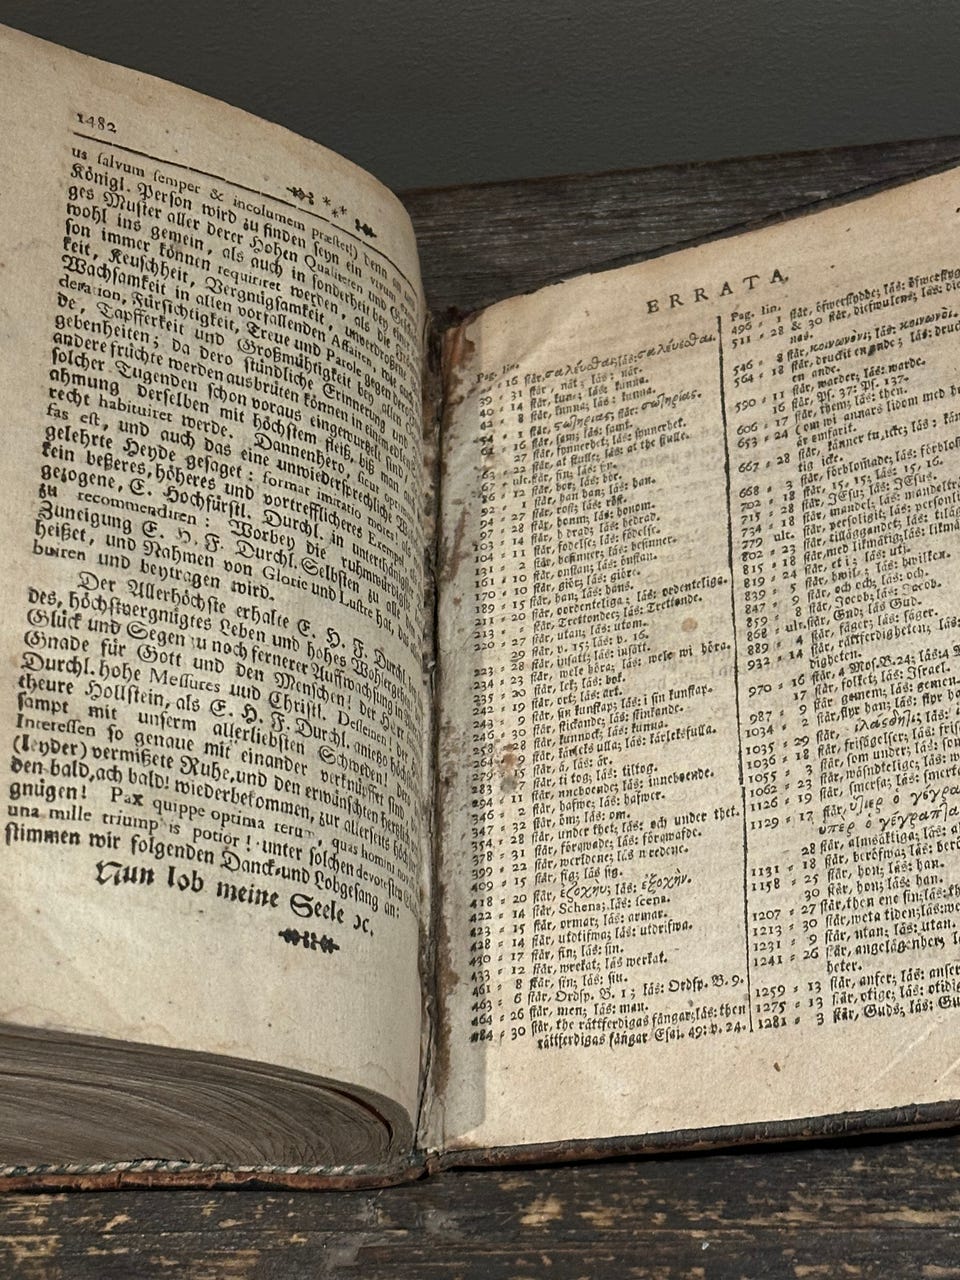 1482
us salvum semper & incolumem præstet!) denn
Königl. Person wird zu finden seyn ein
ges Muster aller derer Hohen Qualiteten und
wohl ins gemein, als auch in sonderheit bey einer
son immer können requiriret werden, als die
keit, Keuschheit, Vergnügsamkeit, unverdroßne
Wachsamkeit in allen vorfallenden Affairen,
deration, Fürsichtigkeit, Treue und Parole gegen
de, Tapfferkeit und Großmühtigkeit bey allen
gebenheiten; da dero stündliche Erinnerung
andere früchte werden ausbrüten können in einem
solcher Tugenden schon voraus eingewurtzelt sind,
ahmung Derselben mit höchstem fleiß, biß man
recht habituiret werde. Dannenhero,
fas est, und auch das eine unwiedersprechliche
gelehrte Heyde gesaget: format imitatio mores!
kein beßeres, höheres und vortrefflicheres Exempel,
gezogene, E. Hochfürstl. Durchl. in unterthänigster
zu recommendiren: Worbey die ruhmwürdigste
Zuneigung E. H. F. Durchl. Selbsten zu alle dem
heißet, und Nahmen von Glorie und Lustre hat, das
buiren und beytragen wird.
Der Allerhöchste erhalte E. H. F. Durchl.
des, höchstvergnügtes Leben und hohes Wohlergehen
Glück und Segen zu noch fernerer Auffwachsung in
Gnade für Gott und den Menschen! der Herr
Durchl. hohe Messures und Christl. Desseinen!
theure Hollstein, als E. H. F. Durchl. anietzo
sampt mit unserm allerliebsten Schweden!
Interessen so genaue mit einander verknüpffet sind,
(leyder) vermißete Ruhe, und den erwünschten
den bald, ach bald! wiederbekommen, zur allerseits
gnügen! Pax quippe optima rerum, quas homini
una mille triumphis potior! unter solchen devotesten
stimmen wir folgenden Danck-und Lobgesang an:
Nun lob meine Seele ꝛc.
ERRATA.
Pag. lin.
16 står, σαλέυθαι; läs: σαλέυεσθαι.
39 = 31 står, nåt; läs: når.
40 = 14 står, kun; läs: kunna.
42 = 8 står, funna; läs: kunna.
54 = 1 står, σωτηριας; står: σωτηρίας.
står, sam; läs: samt.
27 står, synnerbet; läs: synnerhet.
63 = 22 står, at stulle; läs: at the skulle.
67 = ult. står, sin; läs: sin.
står, bor; läs: bör.
92 = 1 står, han han; läs: han.
94 = 27 står, rost; läs: röst.
97 = 28 står, honnm; läs: honom.
103 = 14 står, h drad; läs: hedrad.
104 = 11 står, födelse; läs: födelse.
131 = 2 står, besinner; läs: besinner.
161 = 10 står, onstan; läs: önstan.
170 = 10 står, giör; läs: giöre.
189 = 15 står, han; läs: hans.
211 = 20 står, oordenteliga; läs: ordenteliga.
213 = står, Trettonder; läs: Trettonde.
220 = 27 står, utan; läs: utom.
29 står, v. 15; läs: v. 16.
223 = 28 står, insatt; läs: insatt.
234 = 23 står, wele höra; läs: wele wi höra.
235 = 20 står, lek; läs: bok.
242 = 19 står, ort; läs: art.
243 = 9 står, sin kunskap; läs: i sin kunskap.
246 = 30 står, stickande; läs: stinkande.
258 = står, kunnod; läs: kunna.
264 = 9 står, kärleks ulla; läs: kärleksfulla.
279 = 7 står, å, läs: är.
283 = 15 står, ti tog; läs: tiltog.
294 = 11 står, inneboende; läs: inneboende.
346 = 2 står, hafwe; läs: hafwer.
347 = 32 står, öm; läs: om.
354 = 28 står, under thet; läs: och under thet.
378 = 31 står, förgwade; läs: förgwafde.
399 = 22 står, werldene; läs n redene.
409 = 15 står, sig; läs sig.
418 = 20 står, ἐζοχην; läs: ἐξοχήν.
422 = 14 står, Schena; läs: scena.
423 = 15 står, ormar; läs: armar.
428 = 14 står, utdtifwa; läs: utdrifwa.
430 = 17 står, sin; läs: sin.
433 = 12 står, wrekat; läs werkat.
461 = 8 står, sin; läs: sitt.
463 = 6 står, Ordsp. B. 1; läs: Ordsp. B. 9.
464 = 26 står, men; läs: man.
484 = 30 står, the rättferdigas fångar; läs: then
rättferdigas fångar Esai. 49: v. 24.
Pag. lin.
496 = 1 står, öfwerflydde; läs: öfwerflyg
511 = 28 & 30 står, diefwulens; läs: die
nas.
546 = 8 står, κοινωνὸνι; läs: κοινωνοὶ.
564 = 18 står, druckit en ande; läs: druc
en ande.
590 = 11 står, warder; läs: warde.
16 står, ps. 37; Ps. 137.
606 = 17 står, them; läs: then.
653 = 24 (om wi annars lidom med h
är omfarit.
667 = 28 står, känner tu, icke; läs: kän
tig icke.
668 = 3 står, förblomade; läs: förblo
702 = 18 står, 15, 15; läs: 15, 16.
715 = 28 står, JEsu; läs: JEsus.
734 = 18 står, mandel; läs: mandelträ
779 ult. står, persoligit; läs: personli
802 = 23 står, tilläggandet; läs: tilläg
815 = 18 står, med likmätig; läs: lik
819 = 24 står, et i; läs: uti.
839 = 5 står, hwil; läs: hwilken.
847 = 9 står, och och; läs: och.
859 = 8 står, Jocob; läs: Jacob.
868 = ult. står, Gud; läs Gud.
889 = 4 står, säger; läs: säger.
932 = 14 står, rättferdigheten; läs:
digheten.
970 = 16 står, 4 Mos. B. 24; läs: 4 M
17 står, folket; läs: Israel.
987 = 9 står, gemen; läs: gemen.
1034 = 2 står, styr han; läs: styr ha
1035 = 29 står, ἱλασθητι; läs: ἱ
1036 = 18 står, frisägelser; läs: frisä
1055 = 3 står, som under; läs: som
1062 = 23 står, wäsndtelige; läs: wä
1126 = 19 står, smersa; läs: smerta
1129 = 17 står, ὑπερ ὁ γέγρα
ὑπὲρ ὁ γέγραπται
28 står, almsäktiga; läs: al
1131 = 18 står, beröfwa; läs: ber
1158 = 25 står, hon; läs: han.
30 står, hon; läs: han.
1207 = 27 står, then ene sin; läs: th
1213 = 30 står, weta tiden; läs: we
1231 = 9 står, ntan; läs: utan.
1241 = 26 står, angelägenher; lä
heter.
1259 = 13 står, anfer; läs: anser
1275 = 13 står, otige; läs: otidig
1281 = 3 står, Guds; läs: Gu